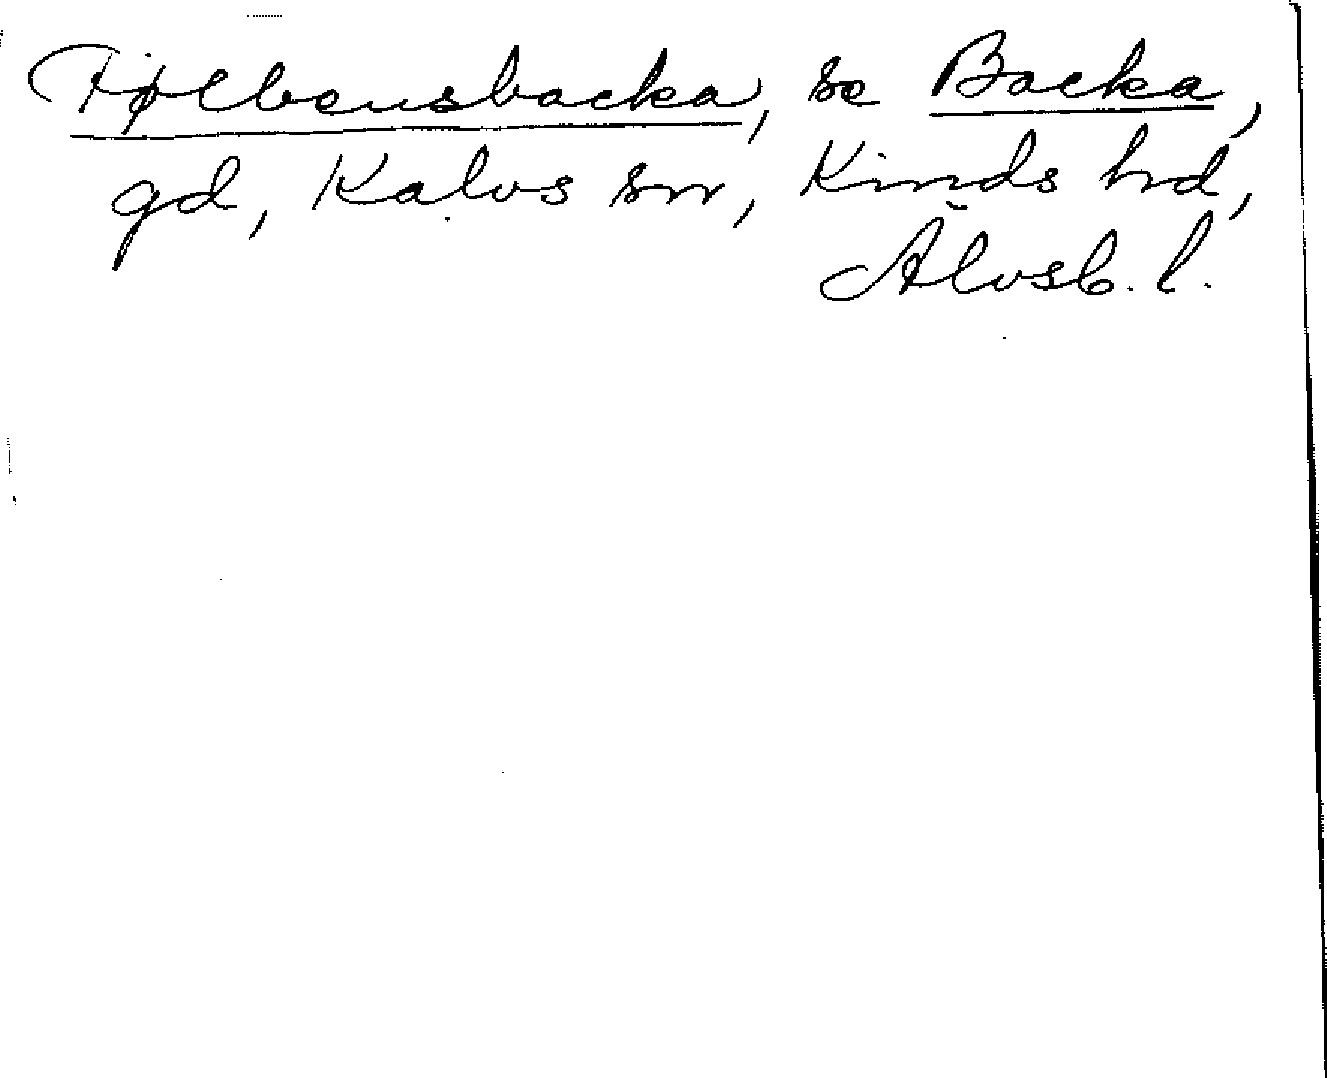 Fjølbensbacka, se Backa,
gd, Kalvs sn, Kinds hd,
Älvsb. l.